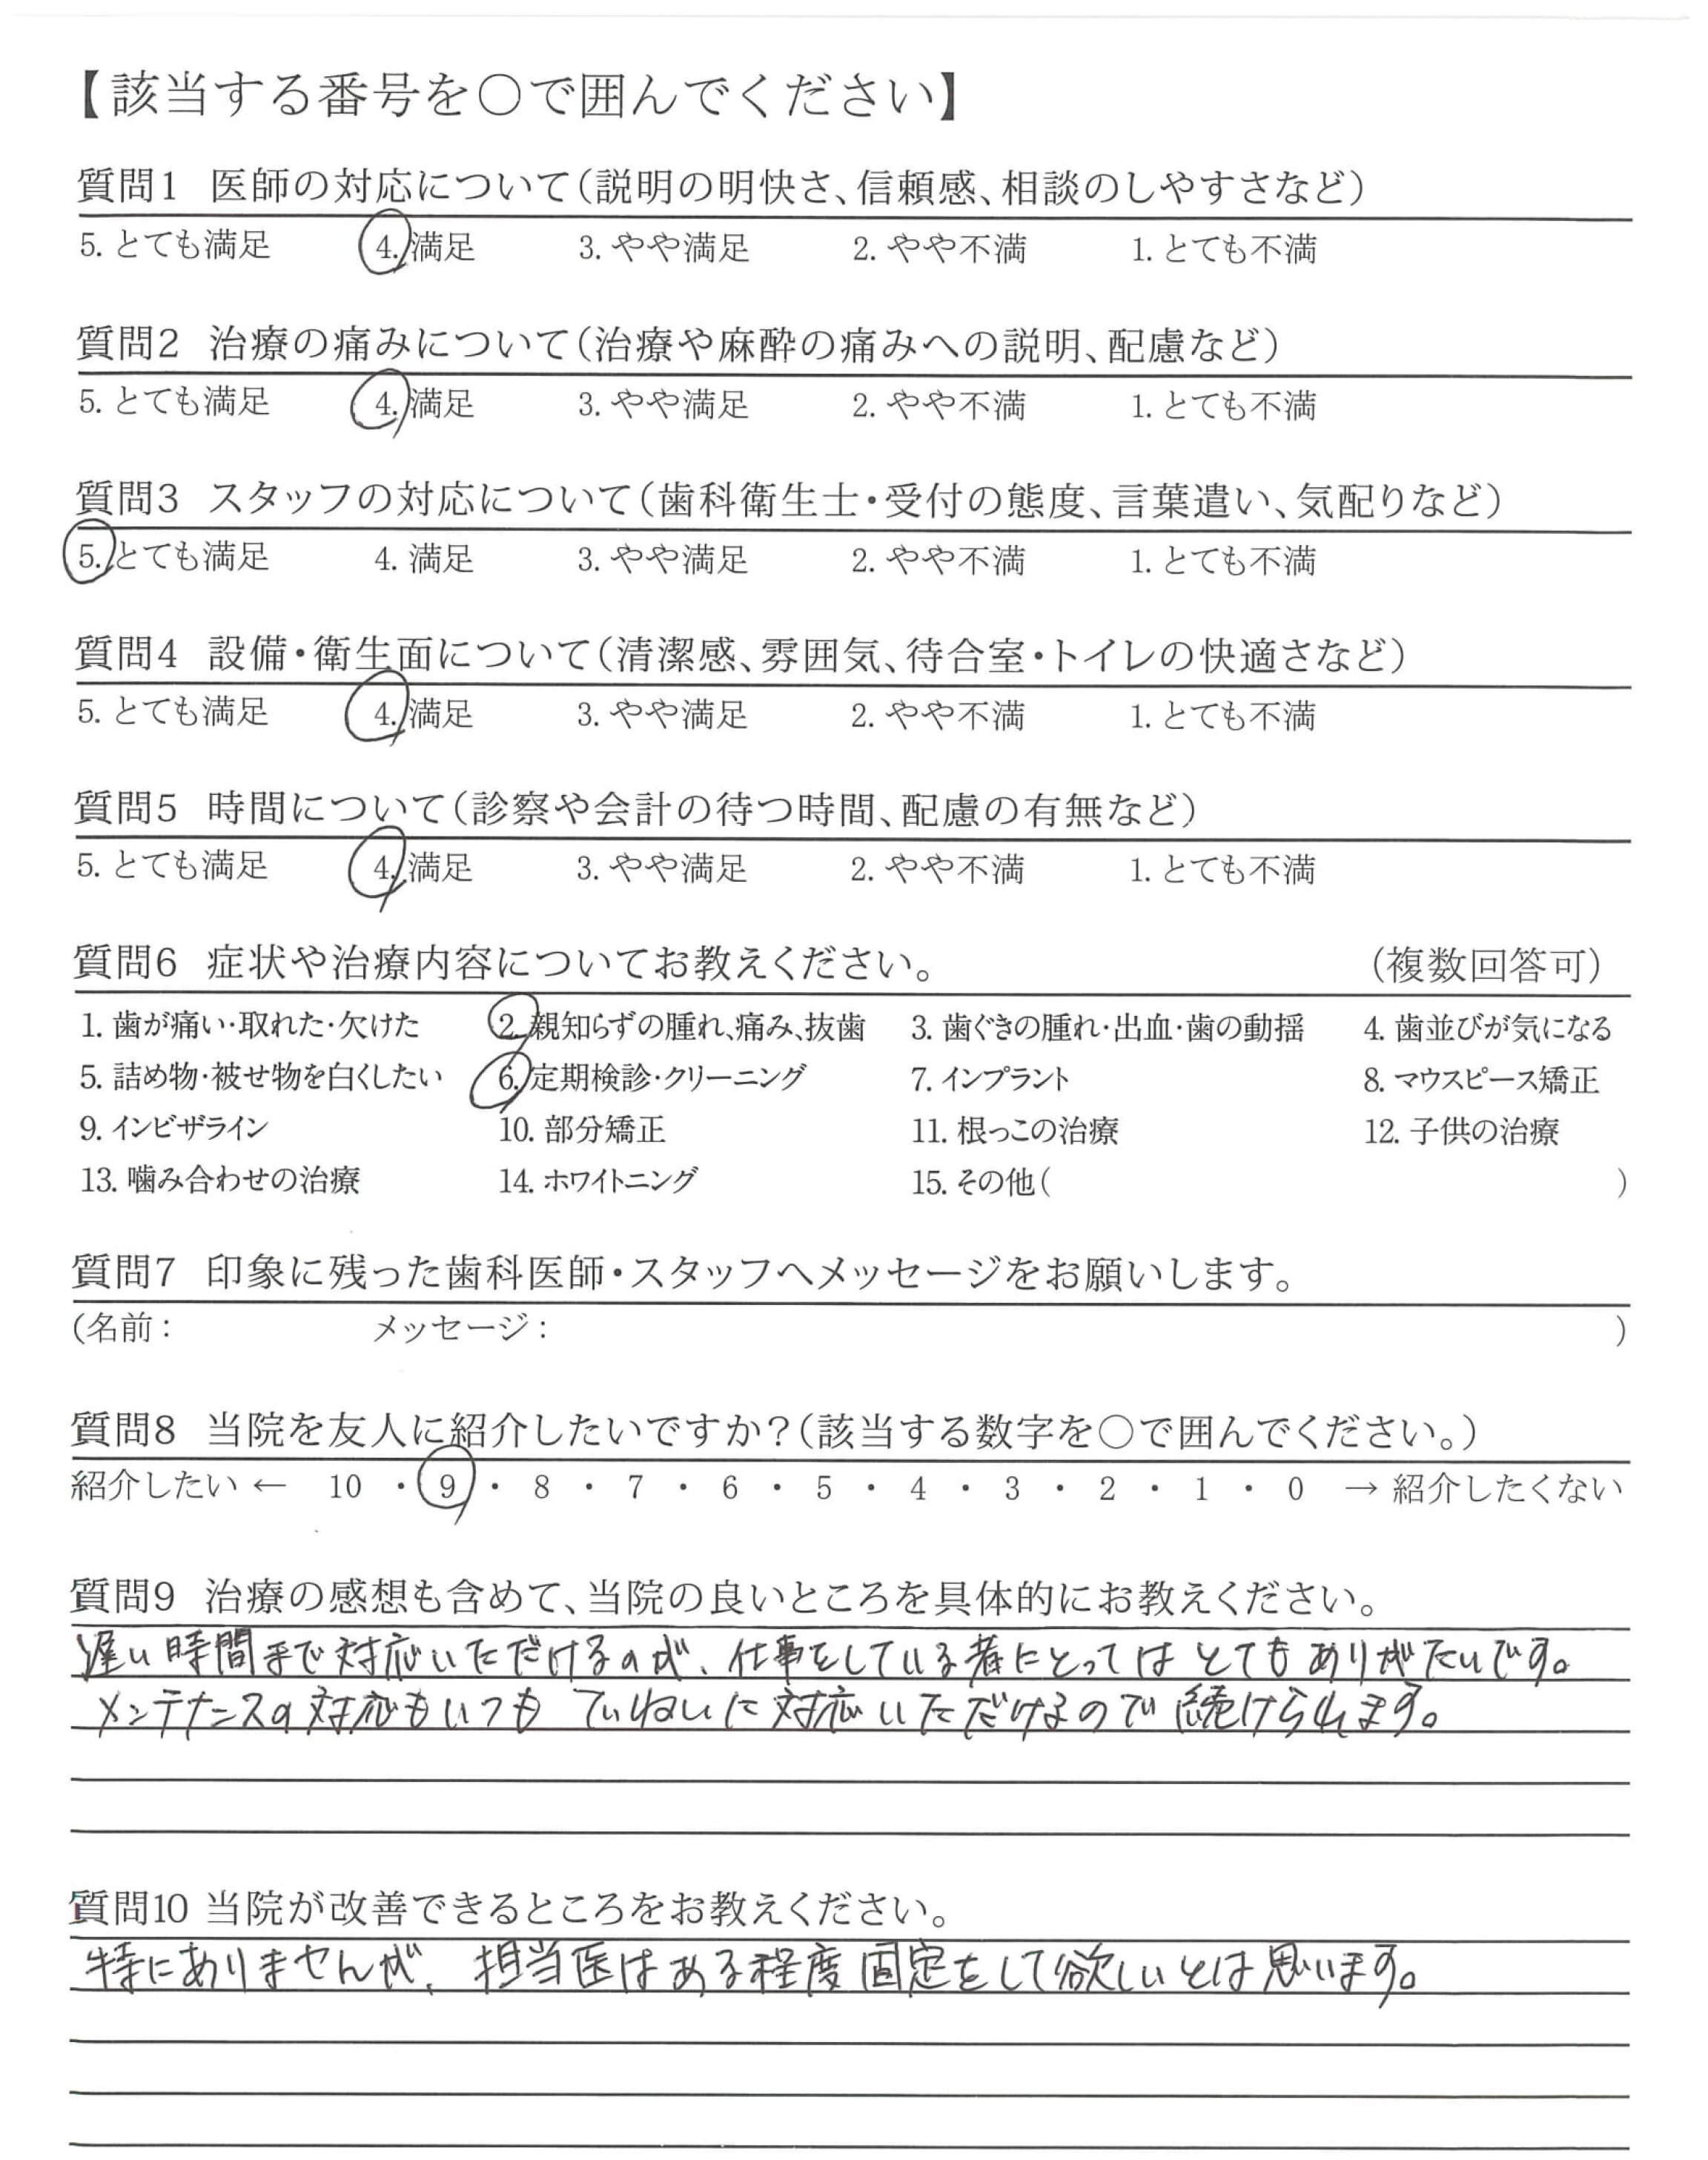 【該当する番号を○で囲んでください】
質問1 医師の対応について(説明の明快さ、信頼感、相談のしやすさなど)
5. とても満足 4. 満足 3. やや満足 2. やや不満 1. とても不満
質問2 治療の痛みについて(治療や麻酔の痛みへの説明、配慮など)
5. とても満足 4. 満足 3. やや満足 2. やや不満 1. とても不満
質問3 スタッフの対応について(歯科衛生士・受付の態度、言葉遣い、気配りなど)
5. とても満足 4. 満足 3. やや満足 2. やや不満 1. とても不満
質問4 設備・衛生面について(清潔感、雰囲気、待合室・トイレの快適さなど)
5. とても満足 4. 満足 3. やや満足 2. やや不満 1. とても不満
質問5 時間について(診察や会計の待つ時間、配慮の有無など)
5. とても満足 4. 満足 3. やや満足 2. やや不満 1. とても不満
質問6 症状や治療内容についてお教えください。 (複数回答可)
1. 歯が痛い・取れた・欠けた 2. 親知らずの腫れ、痛み、抜歯 3. 歯ぐきの腫れ・出血・歯の動揺 4. 歯並びが気になる
5. 詰め物・被せ物を白くしたい 6. 定期検診・クリーニング 7. インプラント 8. マウスピース矯正
9. インビザライン 10. 部分矯正 11. 根っこの治療 12. 子供の治療
13. 噛み合わせの治療 14. ホワイトニング 15. その他( )
質問7 印象に残った歯科医師・スタッフへメッセージをお願いします。
(名前: メッセージ: )
質問8 当院を友人に紹介したいですか?(該当する数字を○で囲んでください。)
紹介したい ← 10 ・ 9 ・ 8 ・ 7 ・ 6 ・ 5 ・ 4 ・ 3 ・ 2 ・ 1 ・ 0 → 紹介したくない
質問9 治療の感想も含めて、当院の良いところを具体的にお教えください。
遅い時間まで対応いただけるのが、仕事をしている者にとってはとてもありがたいです。
メンテナンスの対応もいつもていねいに対応いただけるので続けられます。
質問10 当院が改善できるところをお教えください。
特にありませんが、担当医はある程度固定をして欲しいとは思います。